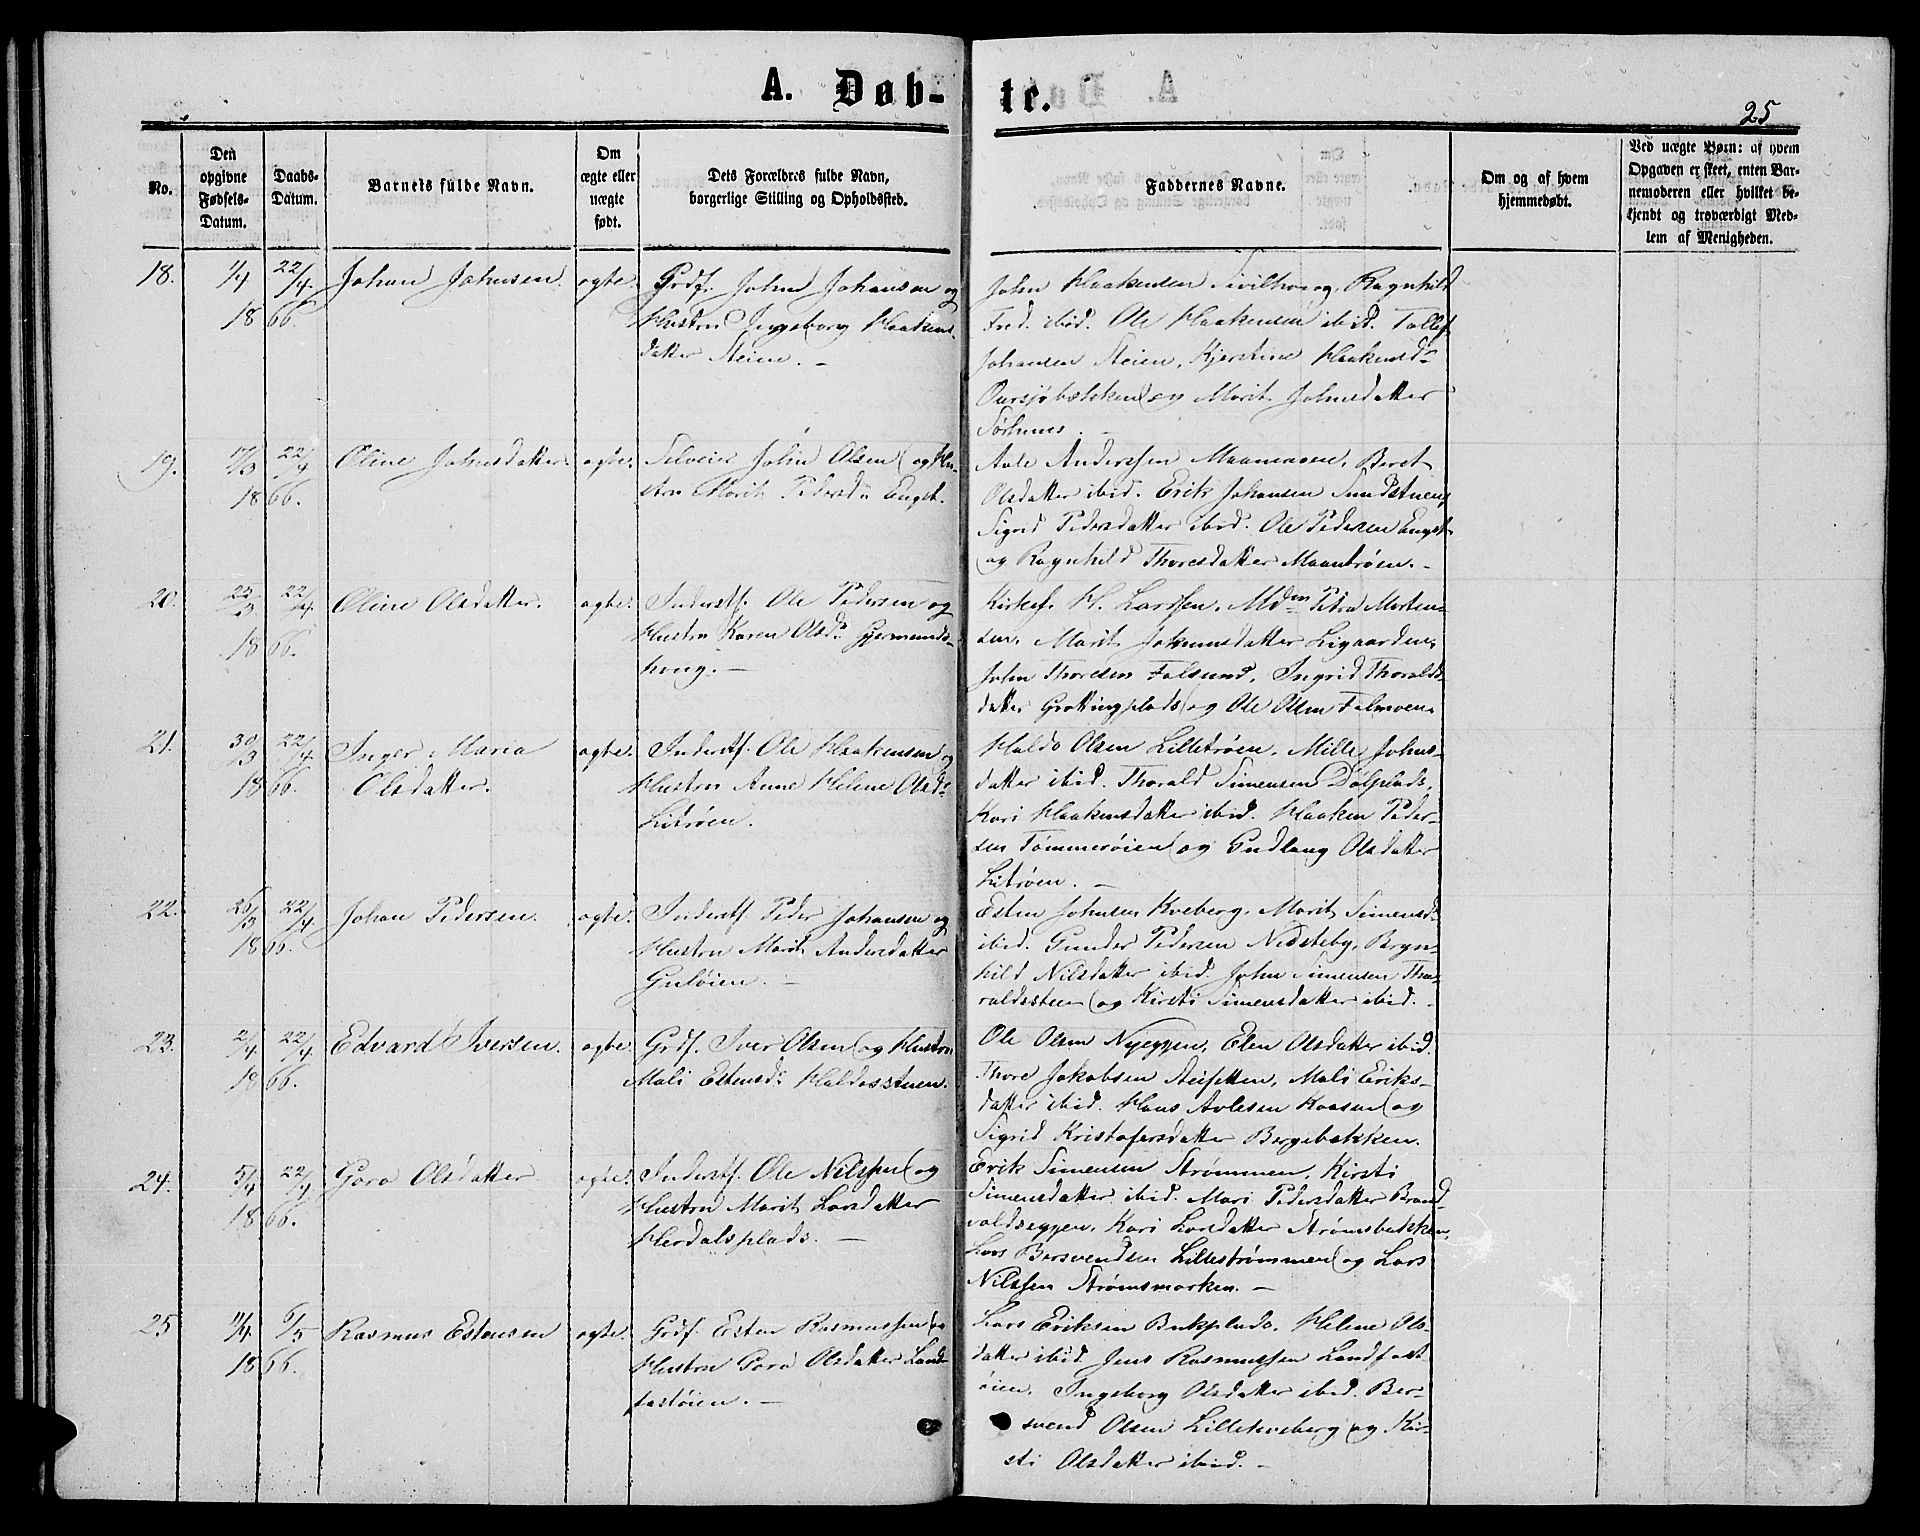 A. Døb-
te.
25
No.
Den opgivne Fødsels-Datum.
Daabs-Datum.
Barnets fulde Navn.
Om ægte eller uægte født.
Dets Forældres fulde Navn, borgerlige Stilling og Opholdssted.
Faddernes Navne.
Om og af hvem hjemmedøbt.
Ved uægte Børn: af hvem Opgaven er skeet, enten Barnemoderen eller hvilket bekjendt og troværdigt Medlem af Menigheden.
18. 1/4 1866. 22/4 Johan Johnsen. ægte.
Grdf. John Johansen og
Hustru Ingeborg Haakens
datter Steien. -
John Haakensen Ragnhild
Fred. ibid. Ole Haakensen ibid. Tollef
Johansen Steien, Kjerstine Haakensdr
Oursjøbækken og Marit Johnsdatter
Sørhuus. -
19. 17/3 1866. 22/4 Oline Johnsdatter. ægte.
Selveier John Olsen og Hu-
stru Marit Pedersdr Enget.
Avle Anderssen Maanmoen, Beret
Olsdatter ibid. Erik Johansen Sundstuen,
Sigrid Pedersdatter ibid. Ole Pedersen Enget
og Ragnhild Thoresdatter Maantrøen. -
20. 23/3 1866. 22/4 Oline Olsdatter. ægte.
Inderstf. Ole Pedersen og
Hustru Karen Olsdr Gjermunds-
houg. -
Kirkes. H. Larssen, Mdm Petra Morten-
sen, Marit Johnsdatter Ligaarden,
John Thoresen Falsund, Ingrid Thoralds
datter Grøttingplads og Ole Olsen Falmoen
21. 30/3 1866. 22/4 Inger Maria
Olsdatter. ægte.
Inderstf. Ole Haakensen og
Hustru Anne Helene Olsdr
Litrøen.
Haldo Olsen Lilletrøen, Mille Johns-
datter ibid. Thorald Simensen Dølplads,
Kari Haakensdatter ibid. Haaken Peder-
sen Tømmerøien og Gudlaug Olsdatter
Litrøen. -
22. 26/3 1866. 22/4 Johan Pedersen. ægte.
Inderstf. Peder Johansen og
Hustru Marit Andersdatter
Guløien. -
Esten Johnsen Kveberg, Marit Simensdr
ibid. Gunder Pedersen Nedsteby, Bryn-
hild Nilsdatter ibid. John Simensen Tho-
raldsstuen og Kirsti Simensdatter ibid. -
23. 2/4 1866. 22/4 Edvard Iversen. ægte.
Grdf. Iver Olsen og Hustru
Mali Estensdr Haldosstuen.
Ole Olsen Nyeggen, Elen Olsdatter ibid.
Thore Jakobsen Steifetten, Mali Eriks-
datter ibid. Hans Avlesen Kaasen og
Sigrid Kristofersdatter Bergebakken.
24. 5/4 1866. 22/4 Goro Olsdatter ægte.
Inderstf. Ole Nilssen og
Hustru Marit Larsdatter
Herdalsplads. -
Erik Simensen Strømmen, Kirsti
Simensdatter ibid. Mari Pedersdatter Brand-
voldseggen, Kari Larsdatter Strømsbakken,
Lars Bersvendsen Lillestrømmen og Lars
Nilssen Strømsmarken. -
25 11/4 1866. 6/5 Rasmus Estensen ægte.
Grdf. Esten Rasmussen og
Hustru Goro Olsdatter Land-
fastøien. -
Lars Eriksen Bukplads, Helene Ols-
datter ibid Jens Rasmussen Landfast
øien, Ingeborg Olsdatter ibid. Ber-
svend Olsen Lillekveberg og Kir-
sti Olsdatter ibid. -